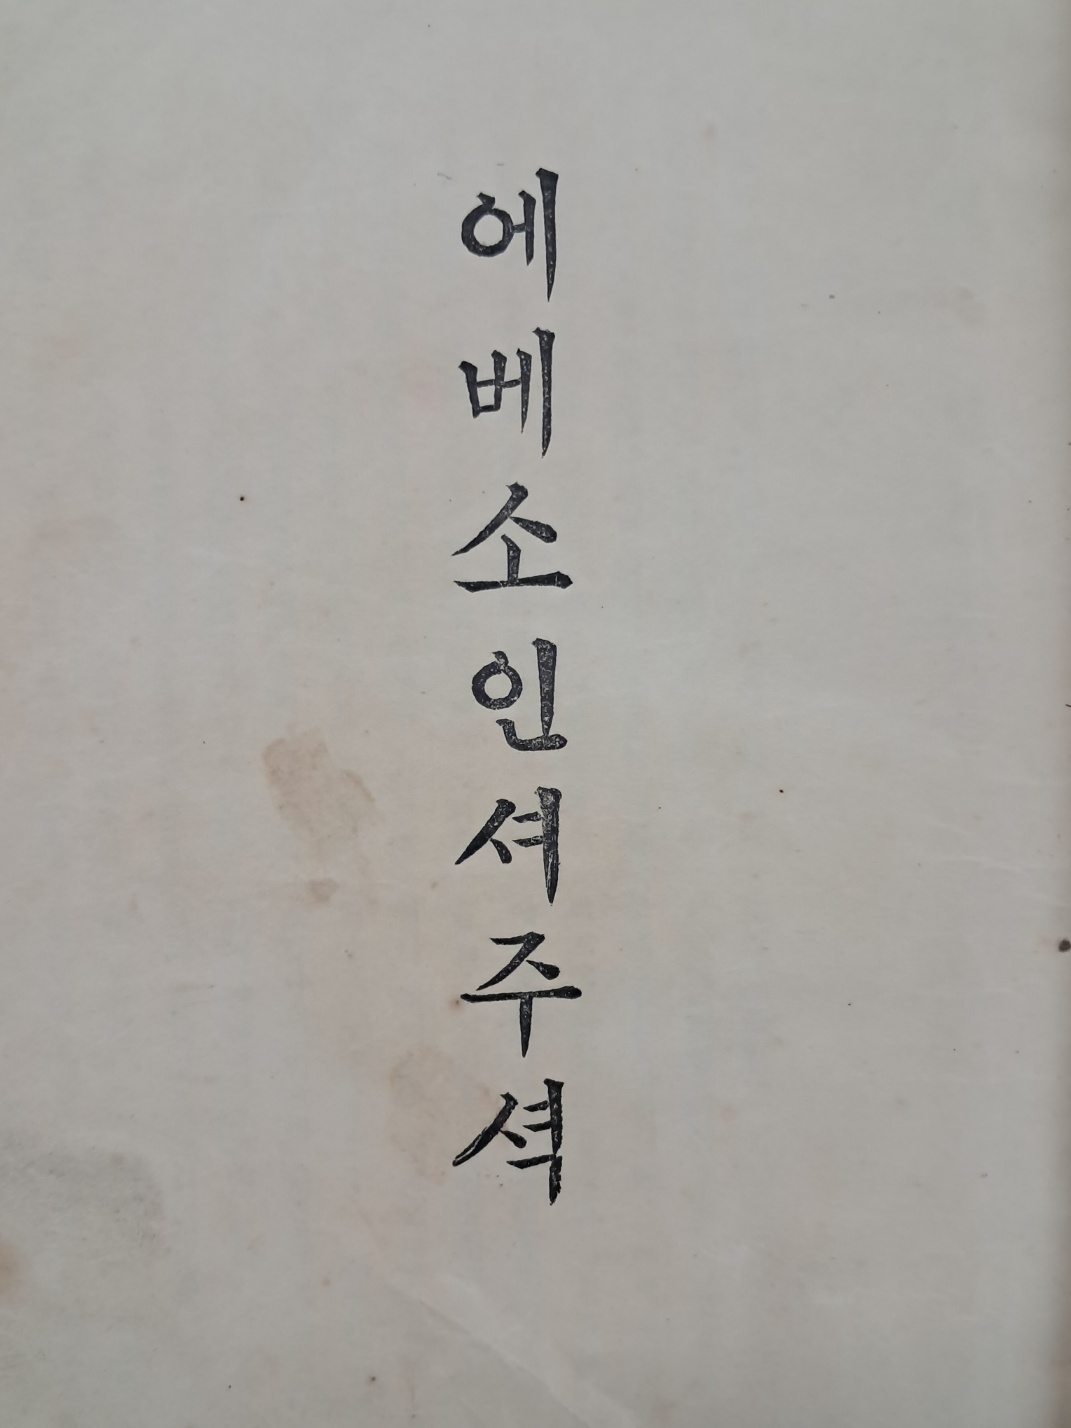 에베소인셔주셕